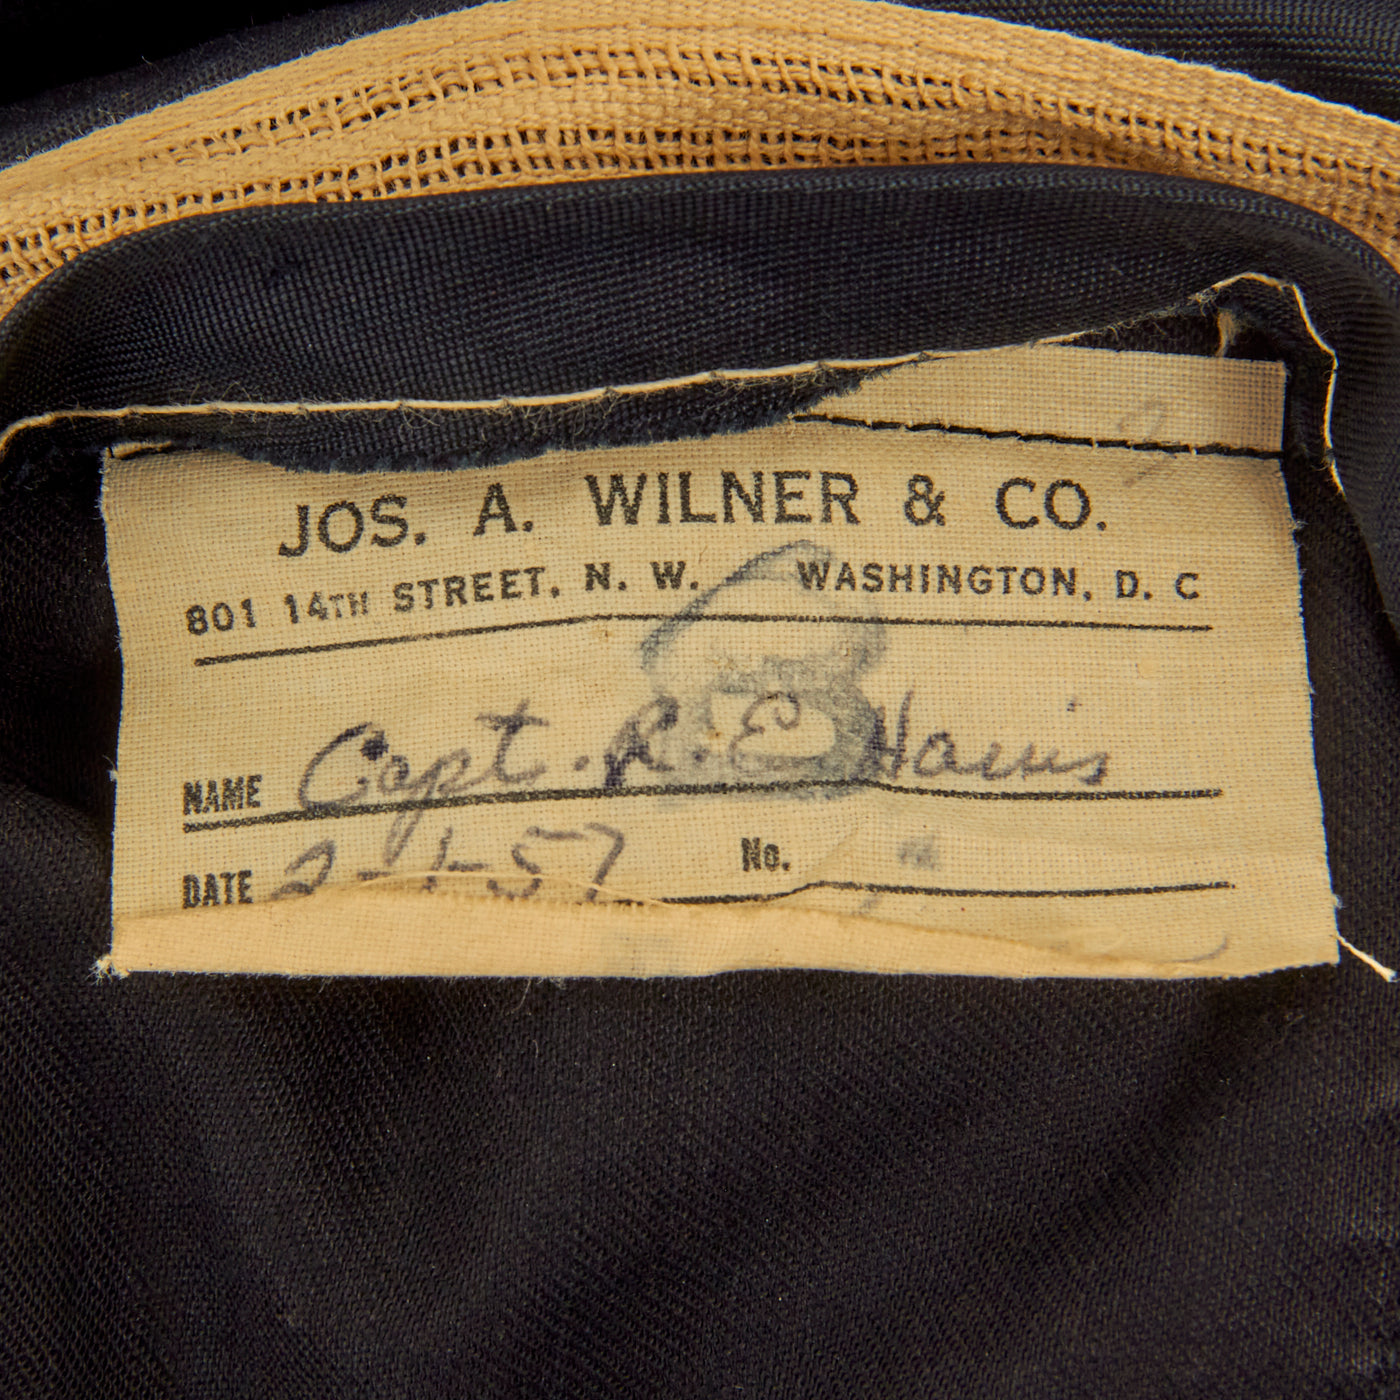 JOS. A. WILNER & CO.
801 14TH STREET, N. W. WASHINGTON, D. C
NAME Capt. R. E. Harris
DATE 2-1-57 No.